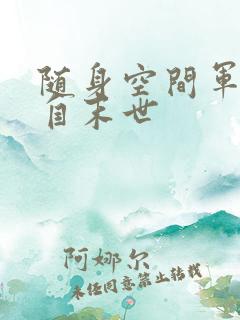 随身空間軍
自末世
阿娜尔
未经同意禁止转载